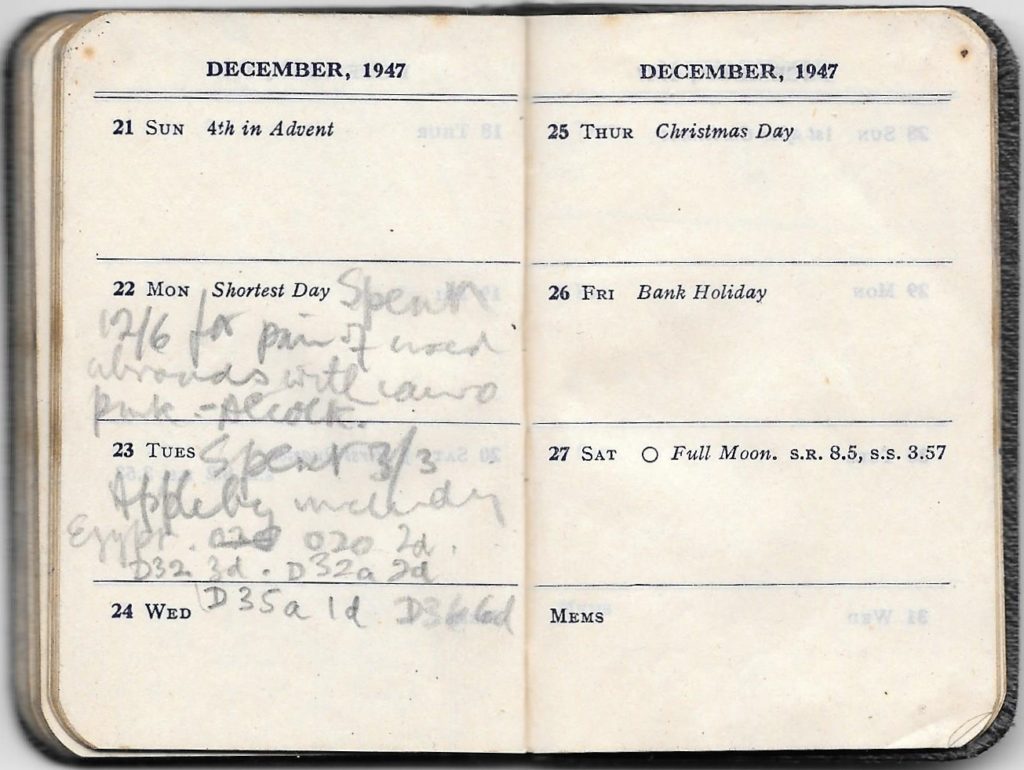 DECEMBER, 1947
21 SUN 4th in Advent
22 MON Shortest Day Spent
12/6 for pair of used
abroads with cairo
pmk. - Alcock.
23 TUES Spent 3/3
Appleby including
Egypt. 020 2d.
D32 3d. D32a 2d
24 WED D35a 1d D36 6d
DECEMBER, 1947
25 THUR Christmas Day
26 FRI Bank Holiday
27 SAT ○ Full Moon. S.R. 8.5, S.S. 3.57
MEMS